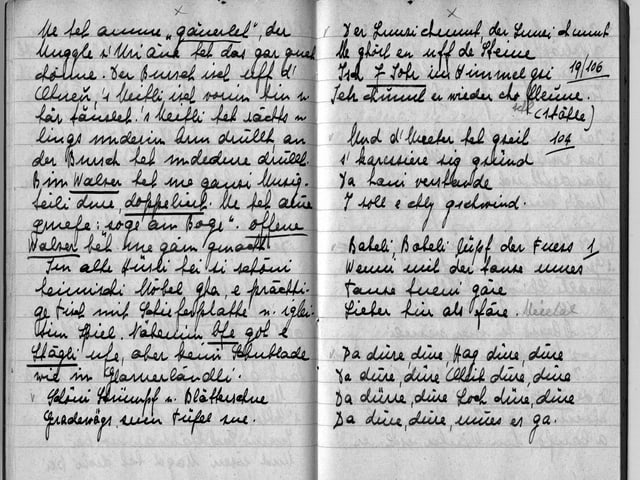 Me het amme „gäuerlet", der
Muggle s'Uriäne het das gar guet
chönne. Der Bursch isch uff d'
's Meitli isch vorem hin u
här tänzlet. 's Meitli het rächts u
lings underim Arm drüllt, an
der Bursch het umdedure drüllt.
Bim Walzer het me ganzi Musig-
teili dure, doppelinet. Me het aube
gruefe: soge am Boge". Offene
Walzer het me gärn gmacht.
Im alte Hüsli hei si schöni
heimischi Möbel gha, e prächti-
ge Tisch mit Schieferplatte u. iglei-
tim Spiel. Näbenim Ofe got e
Stägli ufe, aber keini Schublade
wie im Glarnerländli.
Schöni Strümpf u. Blätterschue
Gradewägs zum Tüfel zue.
Der Lunzi chunnt, der Lunzi chunnt
Me ghört en uff de Steine
Isch 7 Johr im Himmel gsi 19/106
Jetz chunnt er wieder cho
(Stähle)
Und d'Mueter het gseit 104
s'karessiere sig gsünd
Ja hani verstande
I soll e chly gschwind.
Babeli, Babeli lüpf der Fuess 1
Wenn mit der tanze muess
Tanze tueni gäre
Lieber hin als färe.
Da düre, düre, Hag düre, düre
Da düre, düre, düre, düre
Da dürre, düre Loch düre, düre
Da düre, düre, mues es ga.